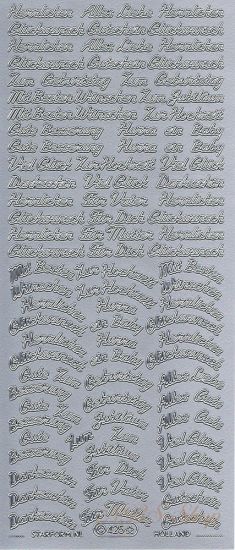 Herzlichen Alles Liebe Herzlichen
Glückwunsch Glückwunsch Glückwunsch
Herzlichen Alles Liebe Herzlichen
Glückwunsch Glückwunsch Glückwunsch
Zum Geburtstag Zum Geburtstag
Mit Besten Wünschen Zum Jubiläum
Mit Besten Wünschen Zum Jubiläum
Gute Besserung Hurra ein Baby
Gute Besserung Hurra ein Baby
Viel Glück Zur Hochzeit Viel Glück
Dankeschön Viel Glück Dankeschön
Herzlichen Für Vater Herzlichen
Glückwunsch Für Dich Glückwunsch
Herzlichen Für Mutter Herzlichen
Glückwunsch Für Dich Glückwunsch
Mit Besten Zur Hochzeit Mit Besten
Wünschen Zur Hochzeit Wünschen
Herzlichen Hurra Herzlichen
Glückwunsch ein Baby Glückwunsch
Herzlichen Hurra Herzlichen
Glückwunsch ein Baby Glückwunsch
Gute Zum Alles Liebe
Besserung Geburtstag Alles Liebe
Gute Zum Alles Gute
Besserung Jubiläum Alles Gute
Gute Zum Viel Glück
Besserung Jubiläum Viel Glück
Dankeschön Für Dich Herzlichen
Dankeschön Für Vater Glückwunsch
Für Mutter
STARFORM NL 425 HOLLAND